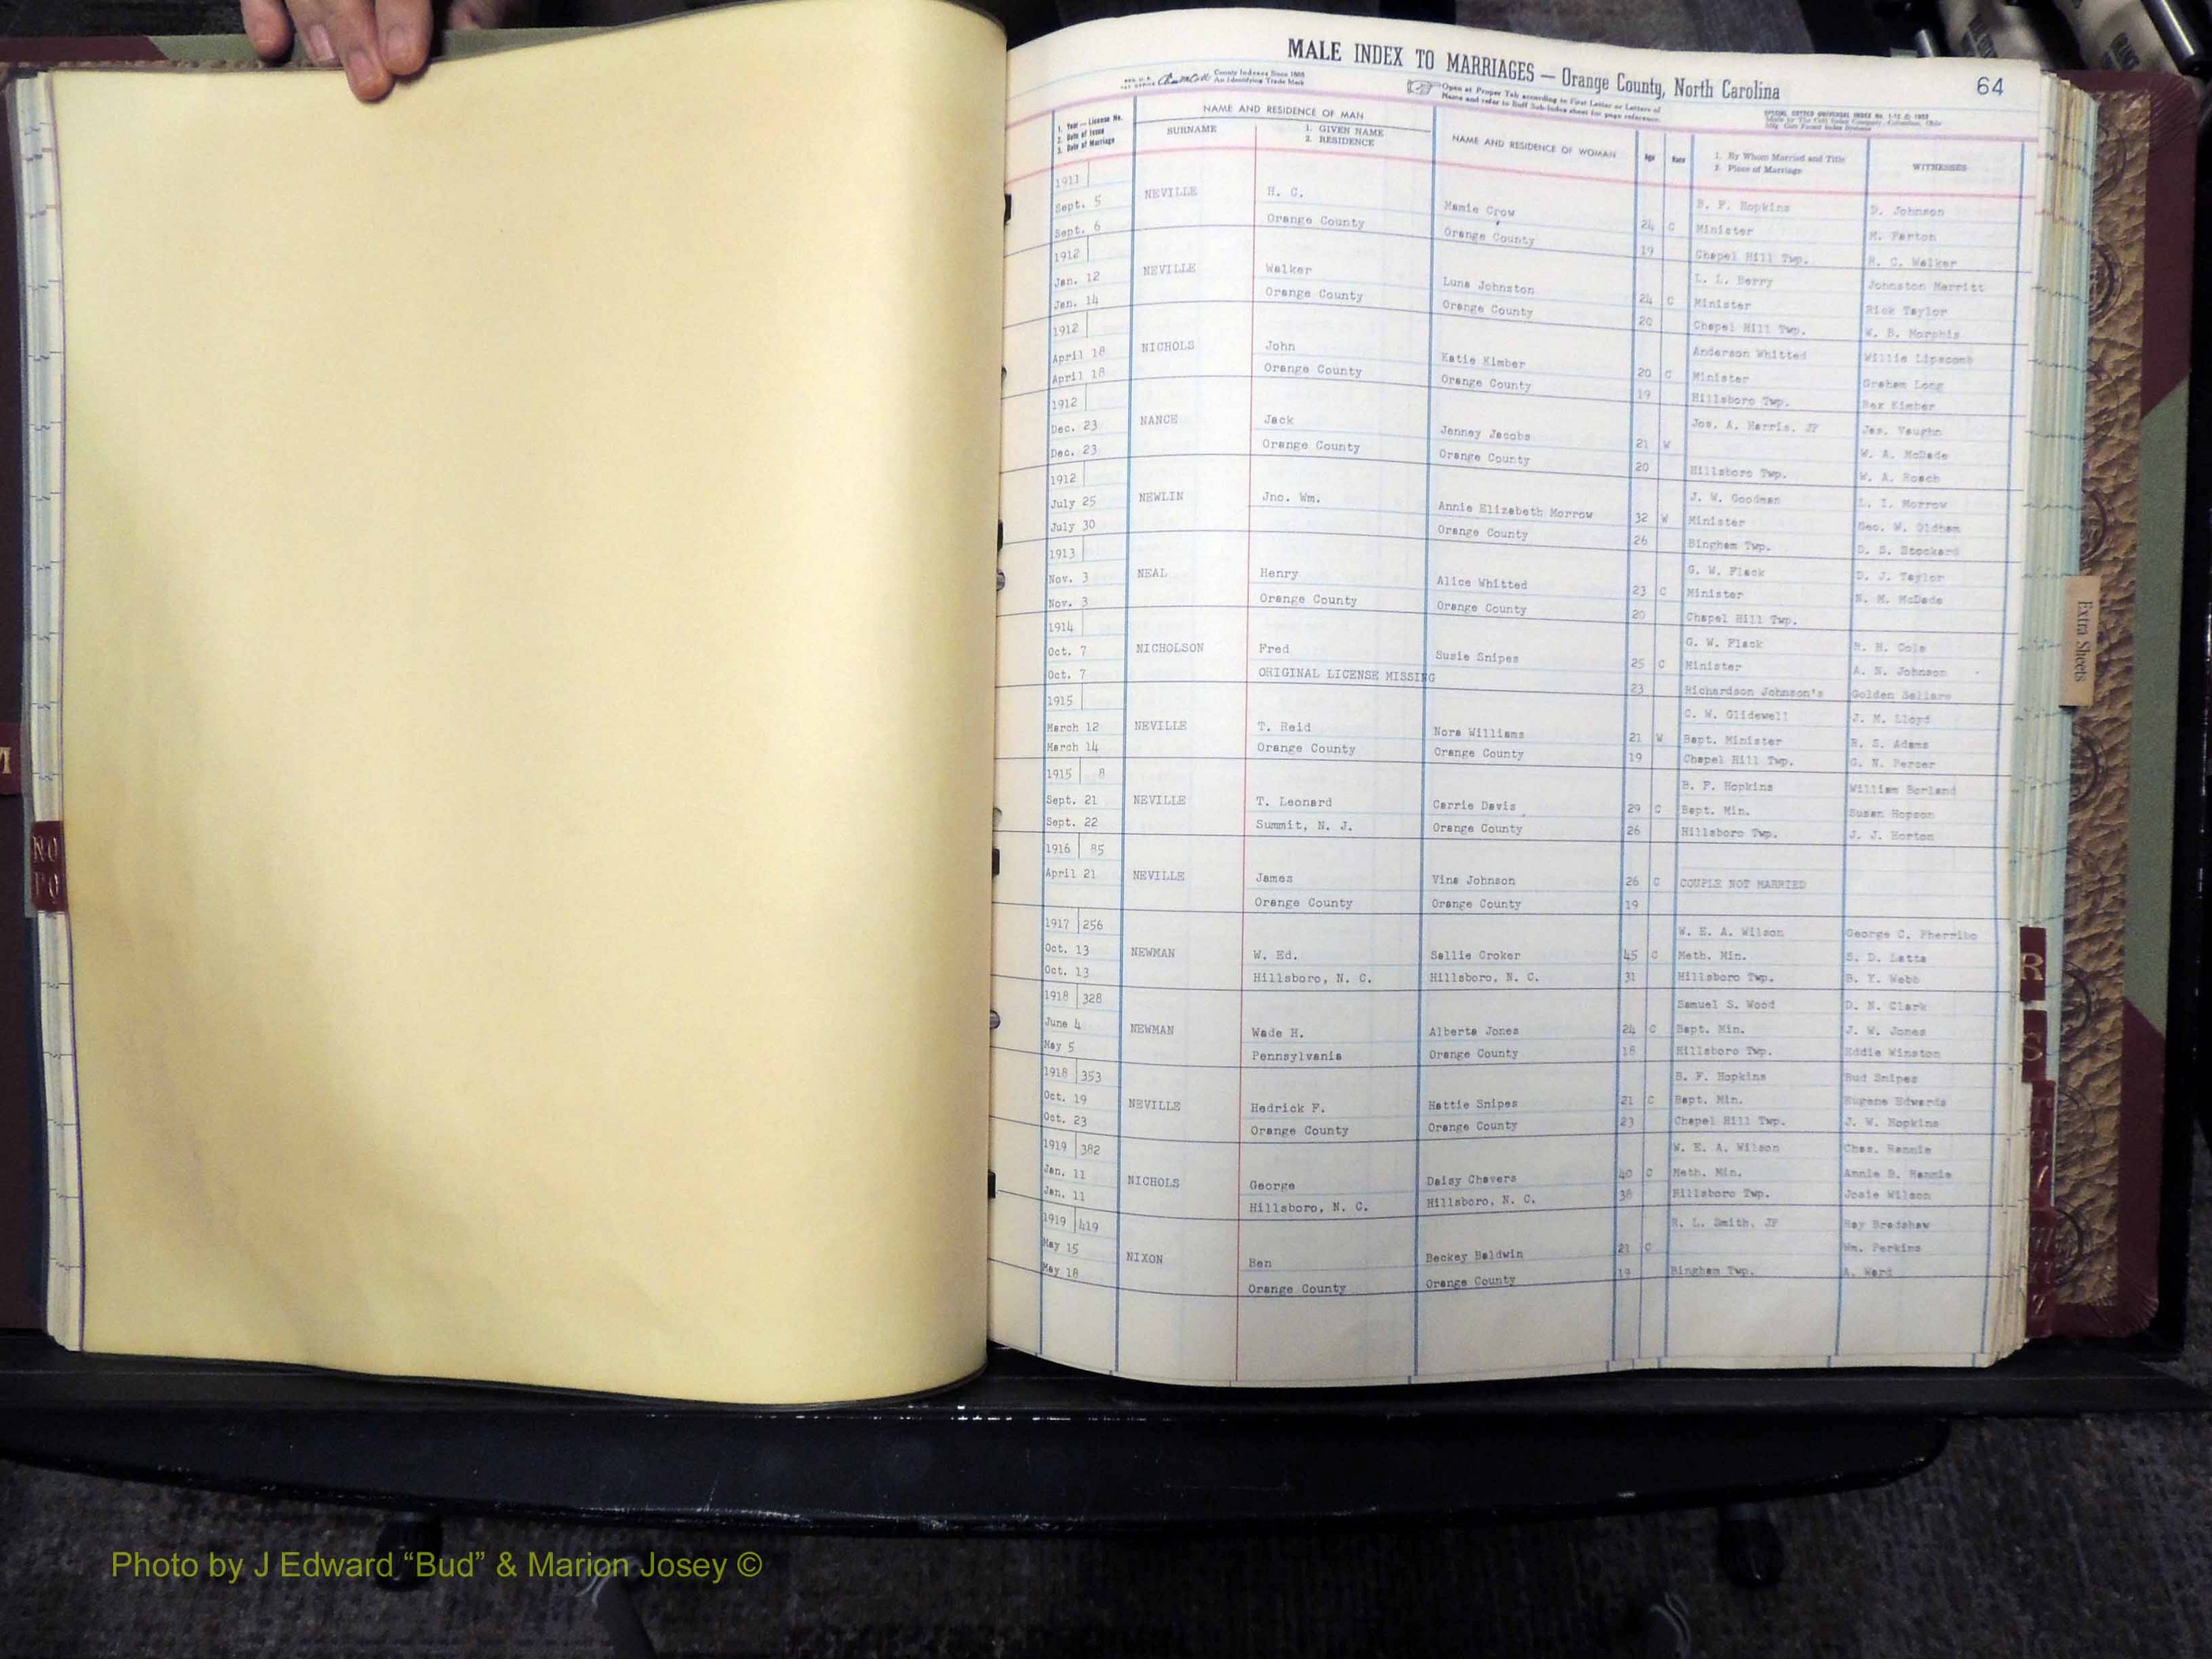 MALE INDEX TO MARRIAGES — Orange County, North Carolina 64
County Indexes Since 1888
An Identifying Trade Mark
Open at Proper Tab according to First Letter or Letters of
Name and refer to Buff Sub-Index sheet for page reference.
1. Year — License No.
2. Date of Issue
3. Date of Marriage
NAME AND RESIDENCE OF MAN
SURNAME
1. GIVEN NAME
2. RESIDENCE
NAME AND RESIDENCE OF WOMAN
Age
Race
1. By Whom Married and Title
2. Place of Marriage
WITNESSES
1911 B. F. Hopkins D. Johnson
Sept. 5 NEVILLE H. C. Mamie Crow 24 C Minister M. Farton
Sept. 6 Orange County Orange County 19 Chapel Hill Twp. H. C. Walker
1912 L. L. Berry Johnston Merritt
Jan. 12 NEVILLE Walker Luna Johnston 24 C Minister Rick Taylor
Jan. 14 Orange County Orange County 20 Chapel Hill Twp. W. B. Morphis
1912 Anderson Whitted Willie Lipscomb
April 18 NICHOLS John Katie Kimber 20 C Minister Graham Long
April 18 Orange County Orange County 19 Hillsboro Twp. Rex Kimber
1912 Jos. A. Harris, JP Jas. Vaughn
Dec. 23 NANCE Jack Jenney Jacobs 21 W W. A. McDade
Dec. 23 Orange County Orange County 20 Hillsboro Twp. W. A. Roach
1912 J. W. Goodman L. I. Morrow
July 25 NEWLIN Jno. Wm. Annie Elizabeth Morrow 32 W Minister Geo. W. Oldham
July 30 Orange County 26 Bingham Twp. D. S. Stockard
1913 G. W. Flack D. J. Taylor
Nov. 3 NEAL Henry Alice Whitted 23 C Minister N. M. McDade
Nov. 3 Orange County Orange County 20 Chapel Hill Twp.
1914 G. W. Flack R. H. Cole
Oct. 7 NICHOLSON Fred Susie Snipes 25 C Minister A. N. Johnson
Oct. 7 ORIGINAL LICENSE MISSING 23 Richardson Johnson's Golden Sellars
1915 C. W. Glidewell J. M. Lloyd
March 12 NEVILLE T. Reid Nora Williams 21 W Bapt. Minister R. S. Adams
March 14 Orange County Orange County 19 Chapel Hill Twp. G. N. Percer
1915 8 B. F. Hopkins William Borland
Sept. 21 NEVILLE T. Leonard Carrie Davis 29 C Bapt. Min. Susan Hopson
Sept. 22 Summit, N. J. Orange County 26 Hillsboro Twp. J. J. Horton
1916 85
April 21 NEVILLE James Vina Johnson 26 C COUPLE NOT MARRIED
Orange County Orange County 19
1917 256 W. E. A. Wilson George C. Pherribo
Oct. 13 NEWMAN W. Ed. Sallie Croker 45 C Meth. Min. S. D. Latta
Oct. 13 Hillsboro, N. C. Hillsboro, N. C. 31 Hillsboro Twp. B. Y. Webb
1918 328 Samuel S. Wood D. N. Clark
June 4 NEWMAN Wade H. Alberta Jones 24 C Bapt. Min. J. W. Jones
May 5 Pennsylvania Orange County 18 Hillsboro Twp. Eddie Winston
1918 353 B. F. Hopkins Bud Snipes
Oct. 19 NEVILLE Hedrick F. Hattie Snipes 21 C Bapt. Min. Eugene Edwards
Oct. 23 Orange County Orange County 23 Chapel Hill Twp. J. W. Hopkins
1919 382 W. E. A. Wilson Chas. Rennie
Jan. 11 NICHOLS George Daisy Chavers 40 C Meth. Min. Annie B. Rennie
Jan. 11 Hillsboro, N. C. Hillsboro, N. C. 38 Hillsboro Twp. Josie Wilson
1919 419 R. L. Smith, JP Ray Bradshaw
May 15 NIXON Ben Beckey Baldwin 21 C Wm. Perkins
May 18 Orange County Orange County 19 Bingham Twp. A. Ward
Extra Sheets
NO
PO
R
S
Photo by J Edward “Bud” & Marion Josey ©